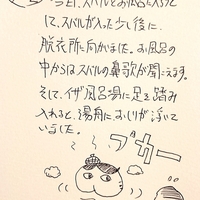 今日、スバルとお風呂に入ろうと
して、スバルが入った少し後に、
脱衣所に向かいました。お風呂の
中からはスバルの鼻歌が聞こえます。
そして、イザ風呂場に足を踏み
入れると、湯舟におしりが浮いて
いました。
プカー